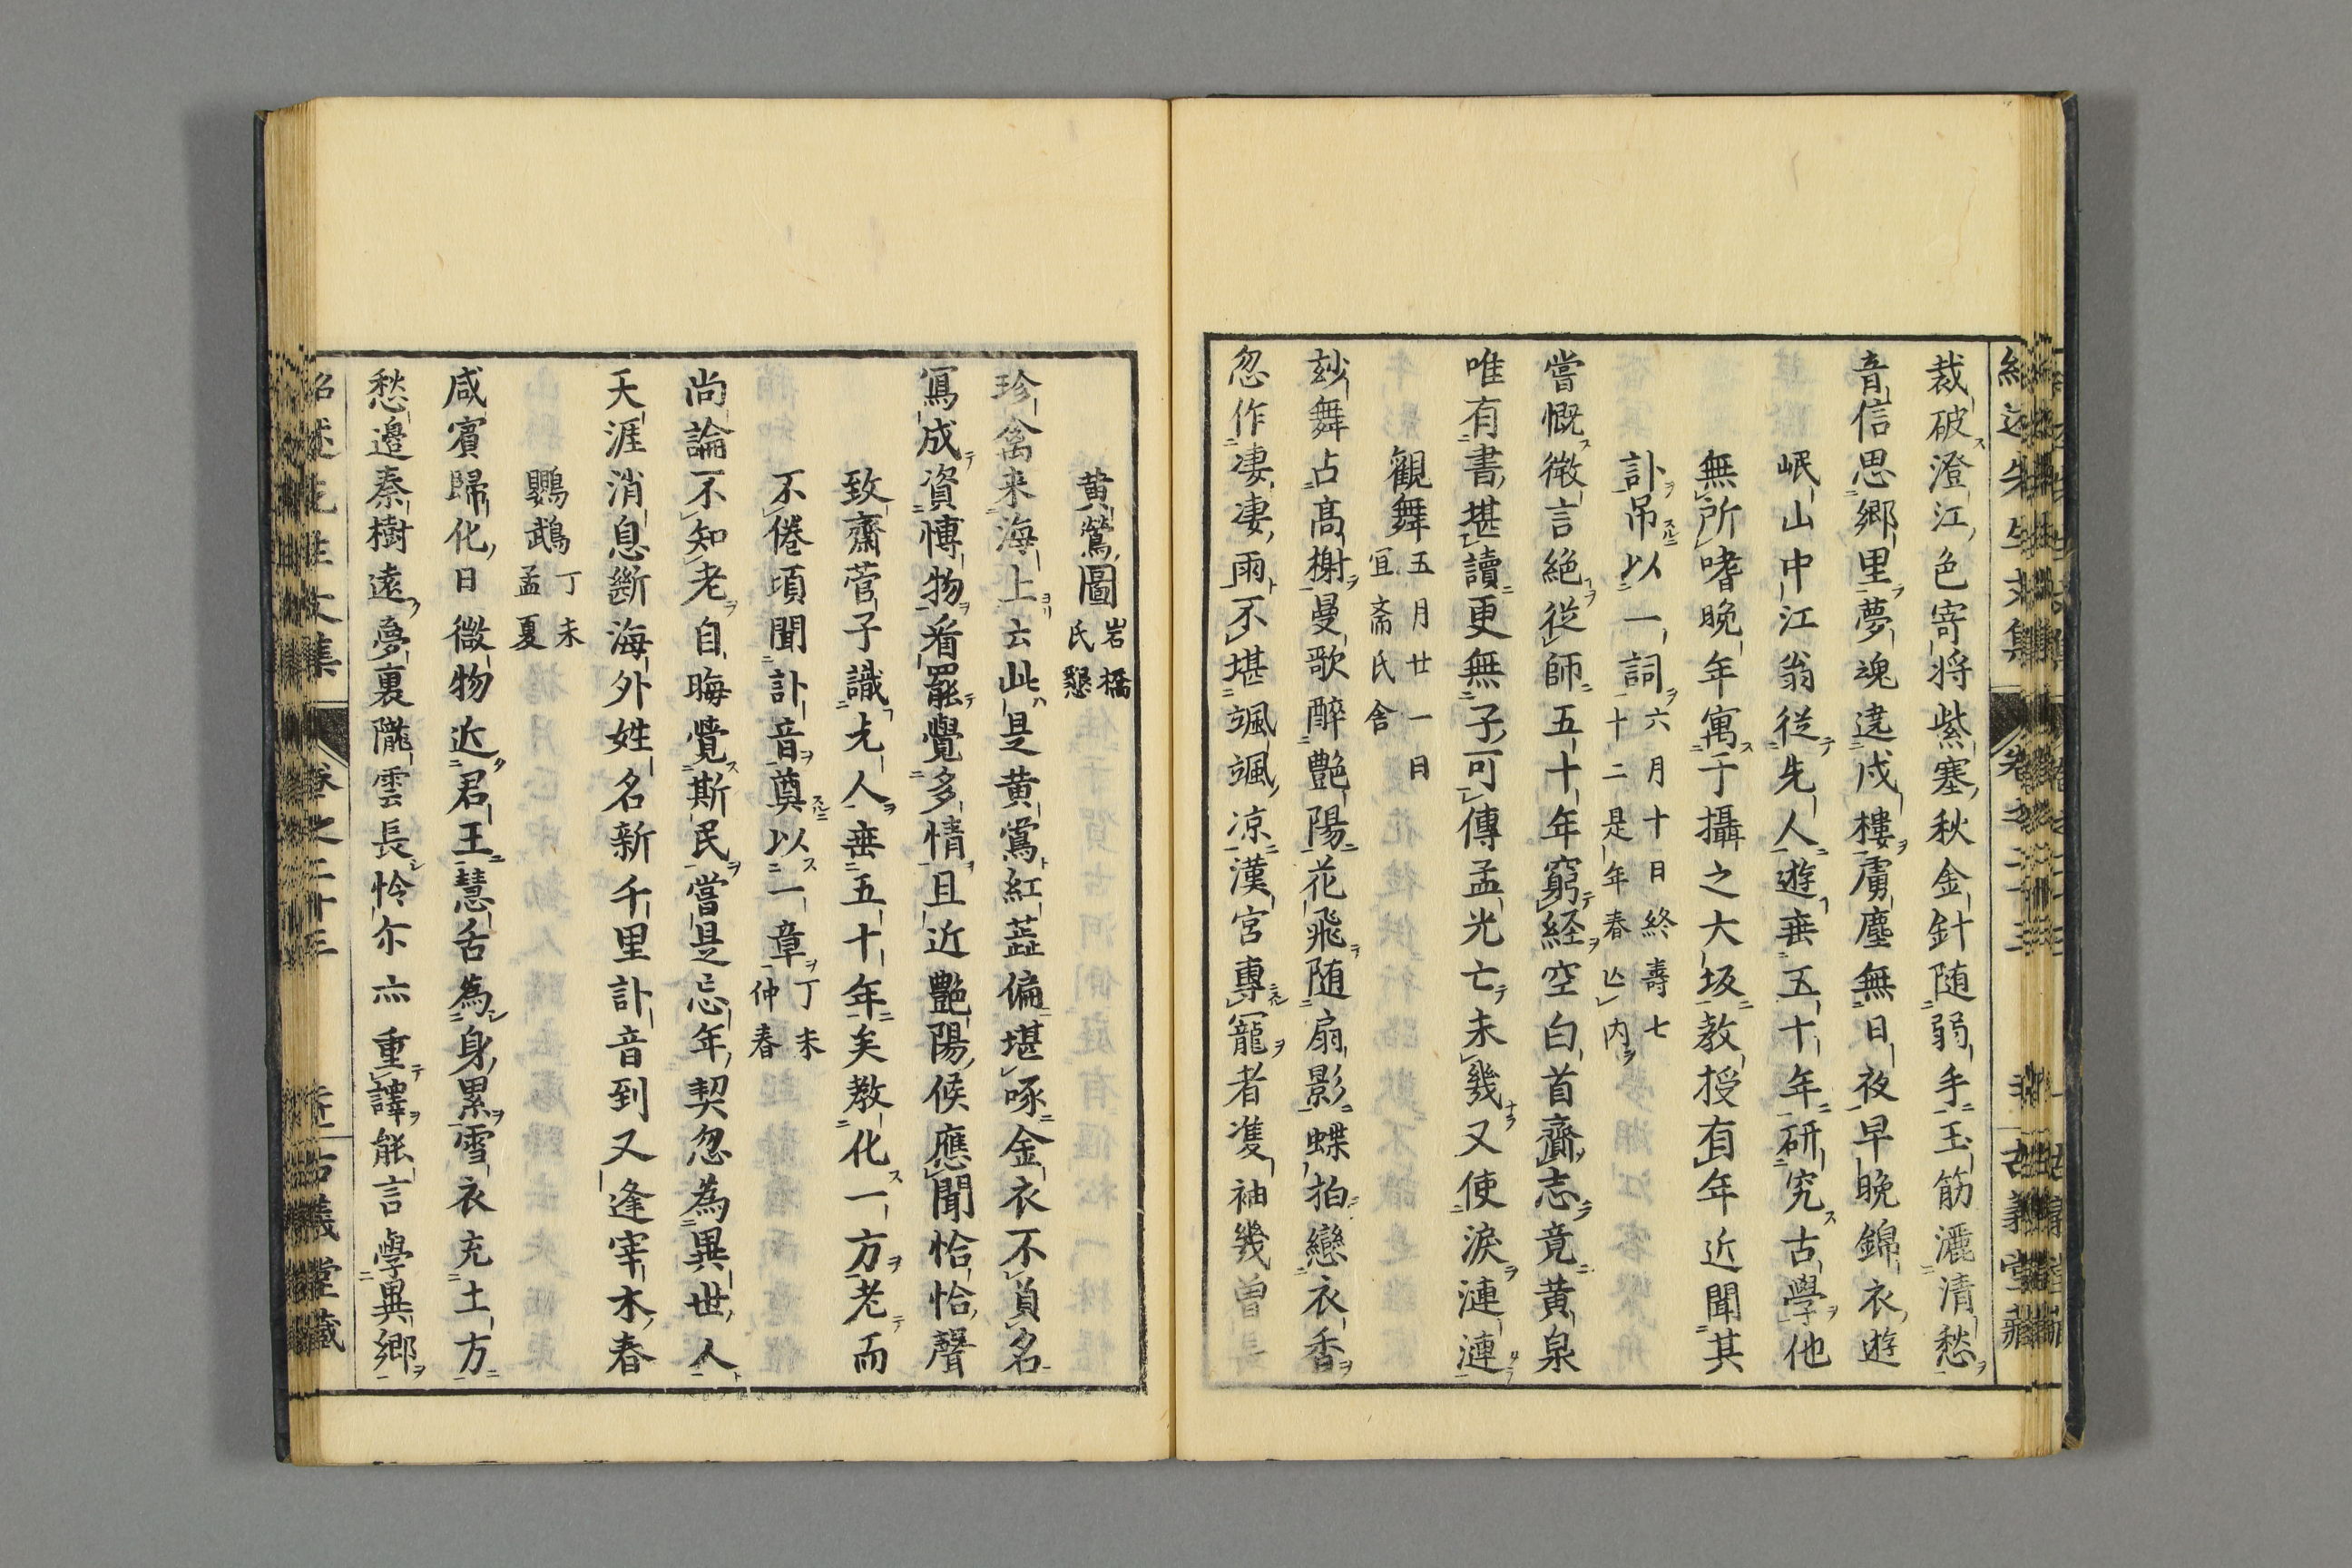 裁破澄江色寄将紫塞秋金針随弱手玉筋灑清愁
音信思郷里夢魂遶戍樓虜塵無日夜早晩錦衣遊
岷山中江翁從先人遊垂五十年研究古學他
無所嗜晩年寓于攝之大坂教授有年近聞其
訃吊以一詞六月十日終壽七
十二是年春亾内
嘗慨微言絶從師五十年窮経空白首齎志竟黄泉
唯有書堪讀更無子可傳孟光亡未幾又使淚漣漣
觀舞五月廿一日
宜斎氏舎
玅舞占高榭曼歌醉艶陽花飛随扇影蝶拍戀衣香
忽作凄凄雨不堪颯颯凉漢宮專寵者隻袖幾曽
黄鶯圖岩橋
氏懇
珍禽来海上云此是黄鶯紅蕋偏堪啄金衣不負名
寫成資愽物看罷覺多情且近艶陽候應聞恰恰聲
致齋菅子識尢人垂五十年矣教化一方老而
不倦頃聞訃音奠以一章丁未
仲春
尚論不知老自晦覺斯民嘗是忘年契忽為異世人
天涯消息斷海外姓名新千里訃音到又逢宰木春
鸚鵡丁未
孟夏
咸賓歸化日微物近君王慧舌為身累雪衣充土方
愁邉秦樹遠夢裏隴雲長怜尓亦重譯能言學異郷
紹述先生文集 卷之二十三 古義堂藏